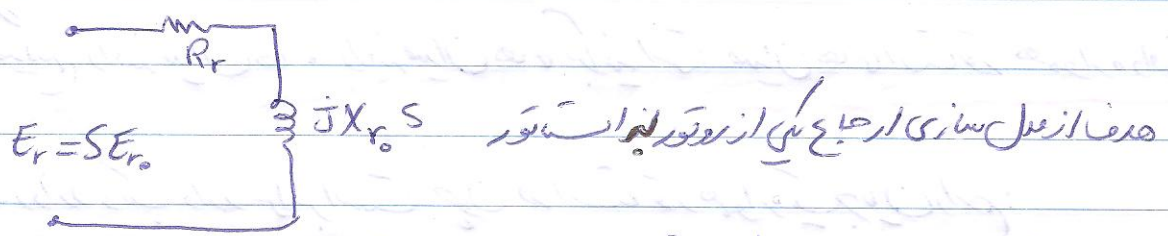 R_r
jX_r₀ S
E_r = SE_r₀
هدف از مدل سازی ارجاع یکی از روتور به استاتور